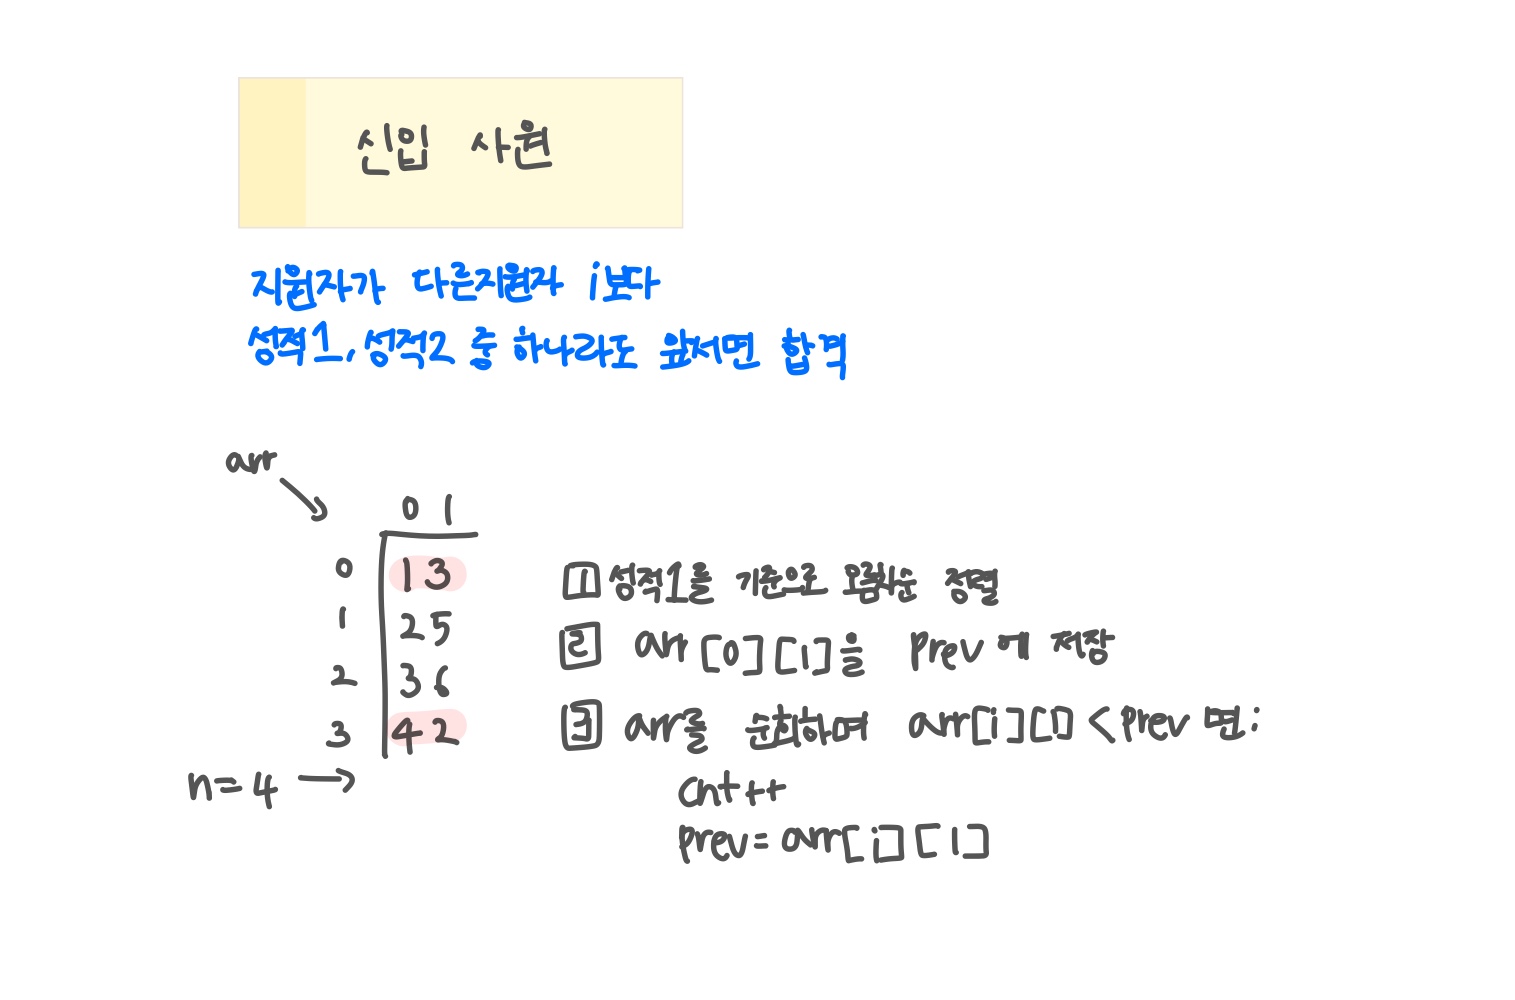 신입 사원
지원자가 다른지원자 i보다
성적1, 성적2 중 하나라도 앞서면 합격
arr
0 1
0 1 3
1 2 5
2 3 6
3 4 2
n=4
1 성적1를 기준으로 오름차순 정렬
2 arr[0][1]을 prev에 저장
3 arr를 순회하며 arr[i][1] < prev 면:
cnt++
prev= arr[i][1]